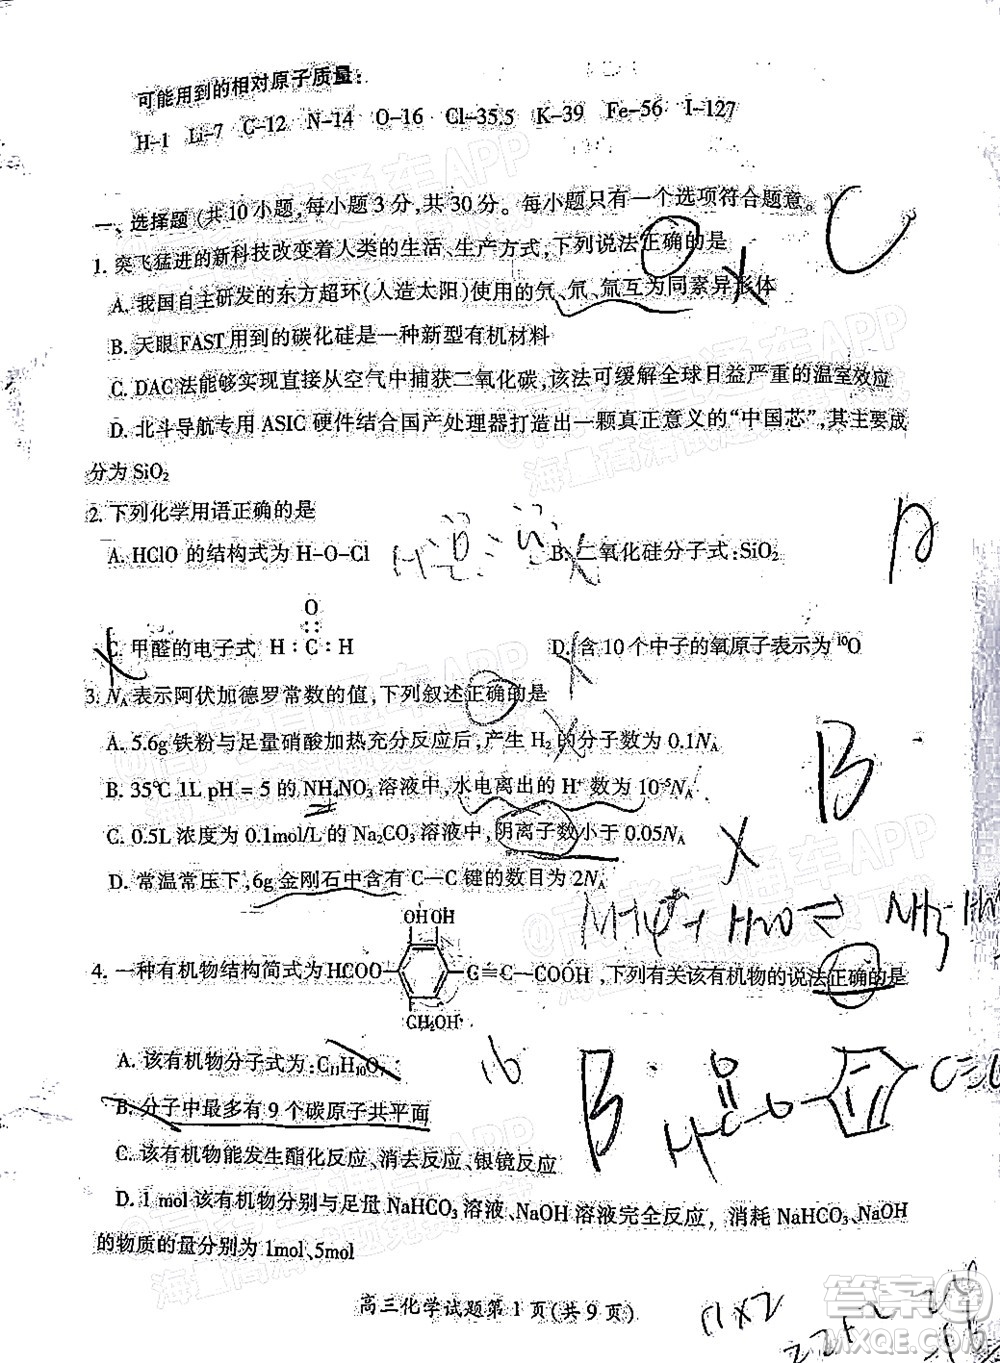 可能用到的相对原子质量:
H-1 Li-7 C-12 N-14 O-16 Cl-35.5 K-39 Fe-56 I-127
一、选择题(共10小题,每小题3分,共30分。每小题只有一个选项符合题意。
C
1. 突飞猛进的新科技改变着人类的生活、生产方式,下列说法正确的是
A. 我国自主研发的东方超环(人造太阳)使用的氕、氘、氚互为同素异形体
B. 天眼FAST用到的碳化硅是一种新型有机材料
C. DAC法能够实现直接从空气中捕获二氧化碳,该法可缓解全球日益严重的温室效应
D. 北斗导航专用ASIC硬件结合国产处理器打造出一颗真正意义的“中国芯”,其主要成
分为SiO2
2. 下列化学用语正确的是
A. HClO的结构式为H-O-Cl
B. 二氧化硅分子式:SiO2
O
C. 甲醛的电子式 H:C:H
D. 含10个中子的氧原子表示为10O
3. NA表示阿伏加德罗常数的值,下列叙述正确的是
A. 5.6g铁粉与足量硝酸加热充分反应后,产生H2的分子数为0.1NA
B
B. 35℃ 1L pH = 5的NH4NO3溶液中,水电离出的H+数为10-5NA
C. 0.5L浓度为0.1mol/L的Na2CO3溶液中,阴离子数小于0.05NA
D. 常温常压下,6g金刚石中含有C—C键的数目为2NA
NH4+ + H2O ⇌ NH3·H
OHOH
4. 一种有机物结构简式为HCOO- -C≡C—COOH,下列有关该有机物的说法正确的是
CH2OH
A. 该有机物分子式为:C11H10O7
16
B
B. 分子中最多有9个碳原子共平面
C. 该有机物能发生酯化反应、消去反应、银镜反应
D. 1 mol该有机物分别与足量NaHCO3溶液、NaOH溶液完全反应,消耗NaHCO3、NaOH
的物质的量分别为1mol、5mol
高三化学试题第1页(共9页)
11×2
22+2
答案圈
MXQE.COM